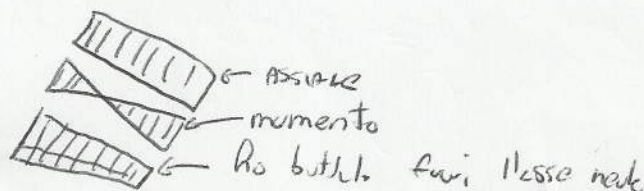 ASSIALE
momento
ho buttato fuori l'asse neutro